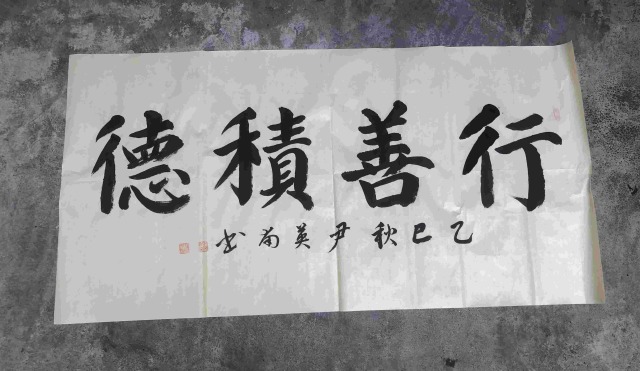 行善積德
乙巳秋尹英前书